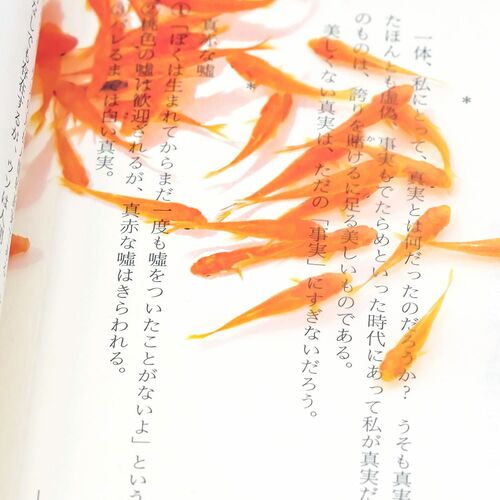 ＊
一体、私にとって、真実とは何だったのだろうか？　うそも真実
たほんとも虚偽、事実もでたらめといった時代にあって私が真実だ
のものは、誇りを賭けるに足る美しいものである。
美しくない真実は、ただの「事実」にすぎないだろう。
＊
真赤な嘘
①「ぼくは生まれてからまだ一度も嘘をついたことがないよ」という
②桃色の嘘は歓迎されるが、真赤な嘘はきらわれる。
③バレるまでは白い真実。